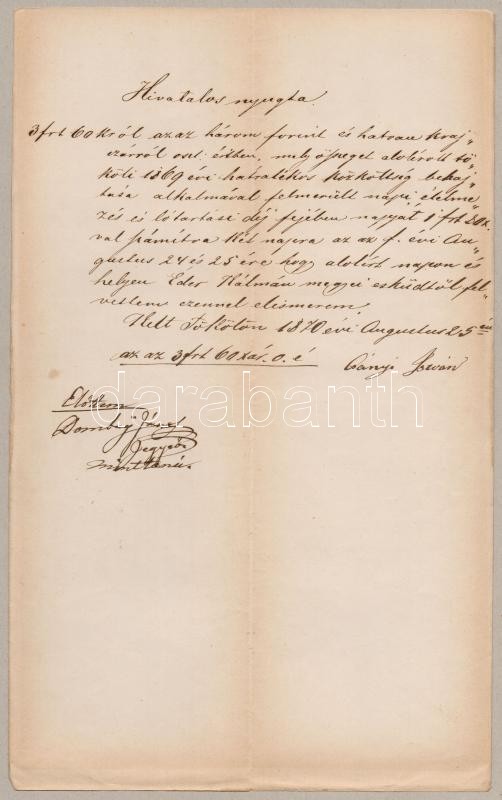 Hivatalos nyugta.
3 frt 60 król azaz három forint és hatvan kraj„
czárról ost. értben, mely összeget alolirott tö„
köli 1869 évi hátralékos közköltség behaj„
tása alkalmával felmerült napi élelme„
zés és lótartási díj fejében napját 1 frt 80 x.
val számitva két napra az az f. évi Au„
gustus 24 és 25 ére hogy alolirt napon és
helyen Éder Kálmán megyei esküdttöl fel„
vettem ezennel elismerem.
Kelt Tökölön 1870 évi Augustus 25 én
az az 3 frt 60 xár. o. é
Csányi István
Előttem
Dombÿ
jegyző
mint tanú.
darabanth
www.darabanth.com